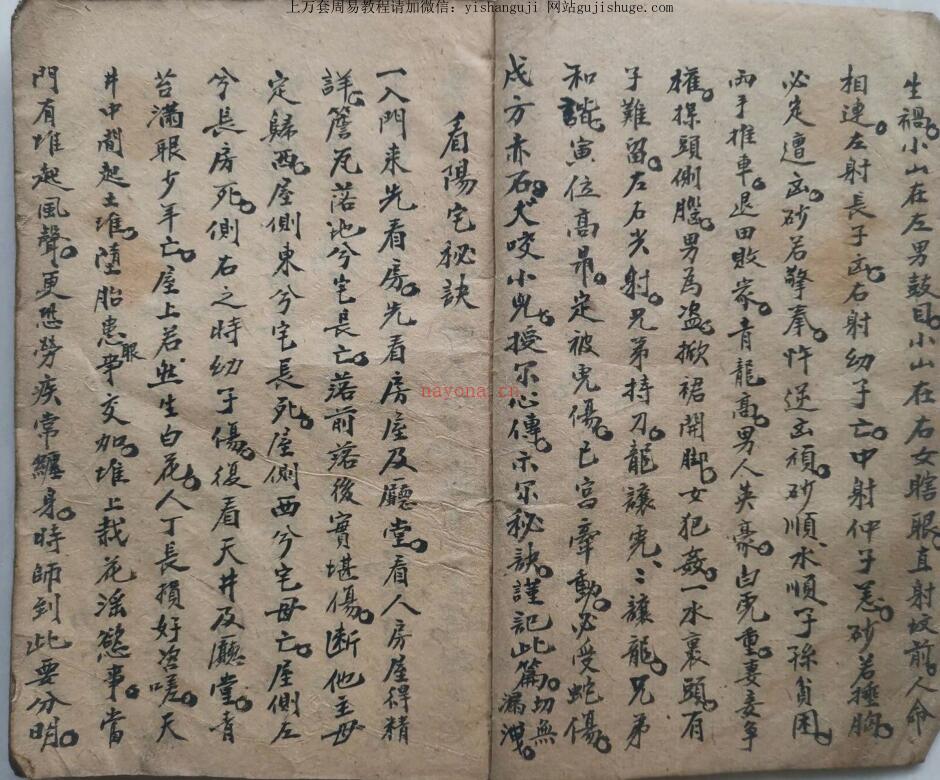 上万套周易教程请加微信：yishanguji 网站gujishuge.com
生禍。小山在左男鼓目。小山在右女瞎眼。直射坟前。人命
相連。左射長子凶。右射幼子亡。中射仲子忌。砂若捶胸。
必定遭凶。砂若擎拳。忤逆凶頑。砂順、水順子孫貧困。
两手推車。退田敗家。青龍高。男人英豪。白虎重。妻妾争
權。探頭側腦。男為盗。掀裙開脚。女犯姦。一水裹頭。有
子難留。左右尖射。兄弟持刀。龍讓虎、〻讓龍。兄弟
和諧。寅位高昂。定被虎傷。巳宫牽動。必受蛇傷。
戌方赤石。犬咬小兒。授尔心傳。示尔秘訣。謹記此篇。切無
漏洩。
看陽宅秘訣
一入門来先看房。先看房屋及廳堂。看人房屋得精
詳。簷瓦落地兮宅長亡。落前落後實堪傷。断他主母
定歸西。屋側東兮宅長死。屋側西兮宅母亡。屋側左
兮長房死。側右之時幼子傷。復看天井及廳堂。青
苔滿眼少年亡。屋上若然生白花。人丁長損好咨嗟。天
井中間起土堆。墮胎患眼事交加。堆上栽花淫慾事。當
門有堆起風聲。更恐勞疾常纏身。時師到此要分明。
nayona.cn